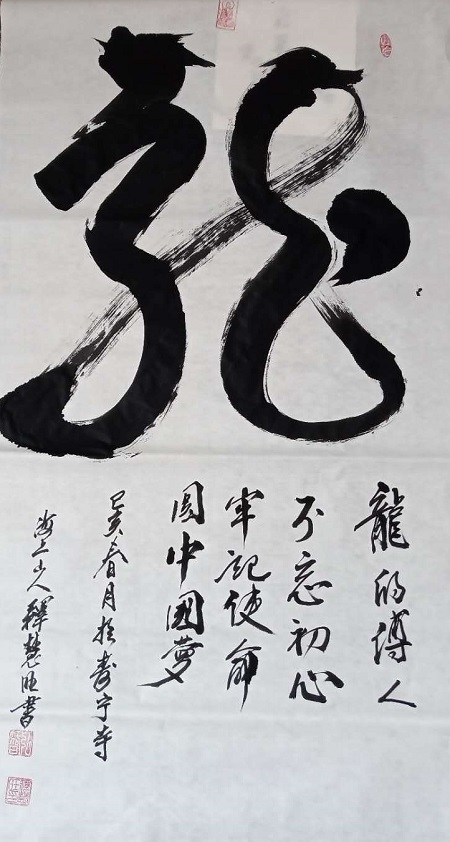 龍
龍的傳人
不忘初心
牢記使命
圓中國夢
己亥春月於壽宁寺
海上山人釋慧旺書